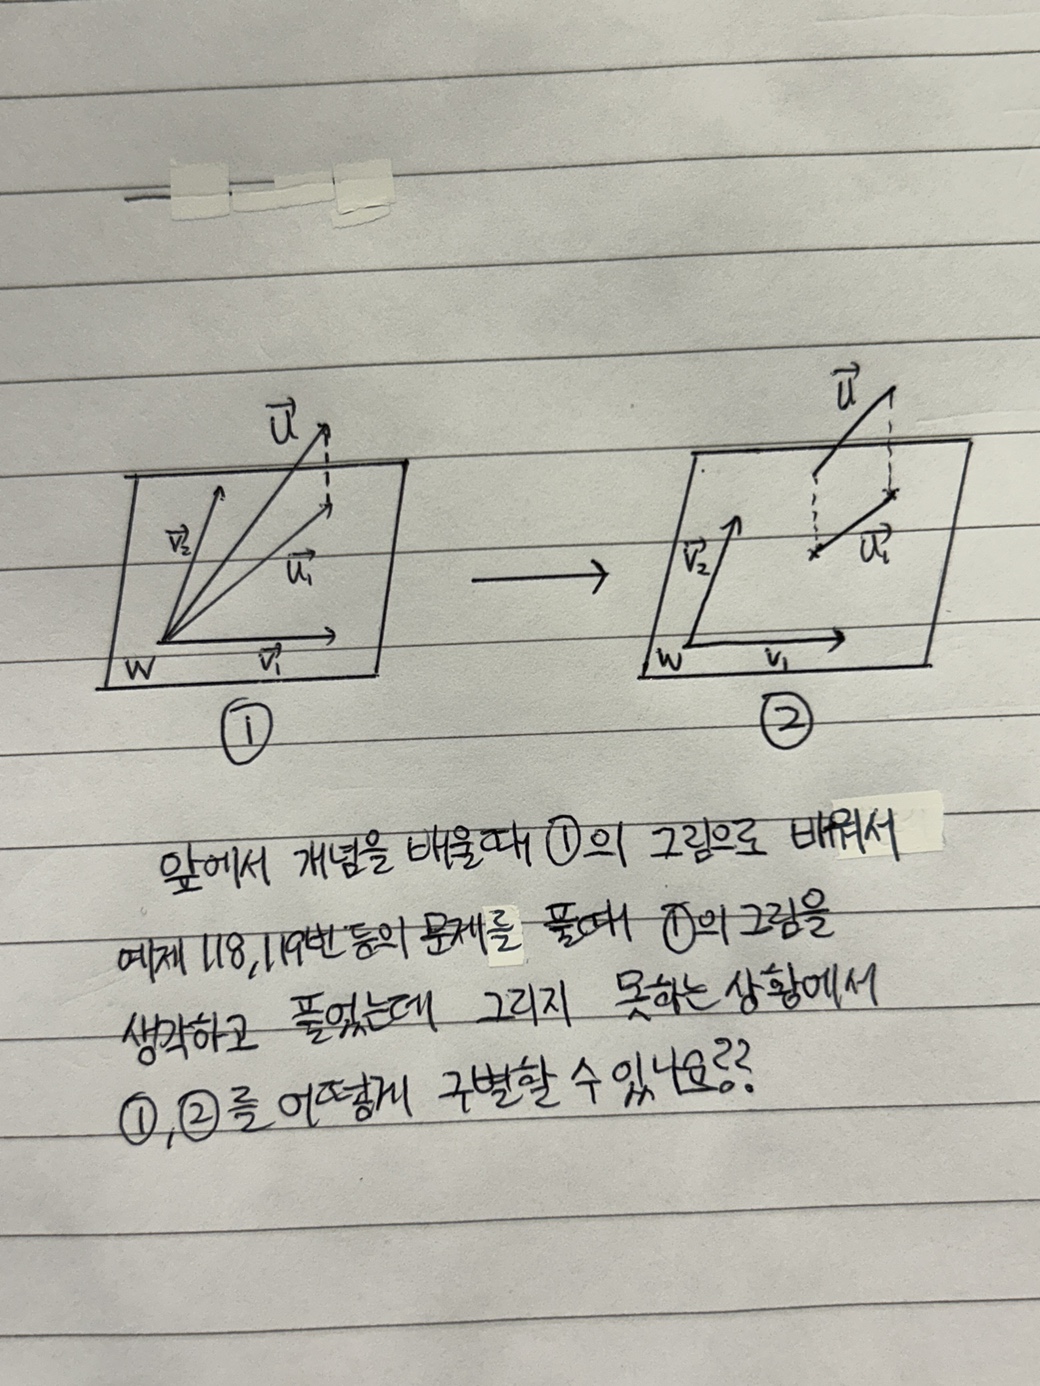 u⃗ u⃗
v⃗₂ u⃗₁ v⃗₂ u⃗₁
W v⃗₁ W v₁
① ②
앞에서 개념을 배울때 ①의 그림으로 배워서
예제 118,119번 등의 문제를 풀때 ①의 그림을
생각하고 풀었는데 그리지 못하는 상황에서
①,②를 어떻게 구별할 수 있나요??